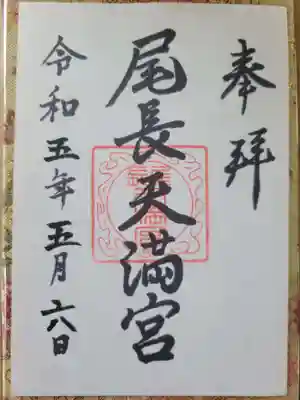 奉拜
尾長天満宮
令和五年五月六日